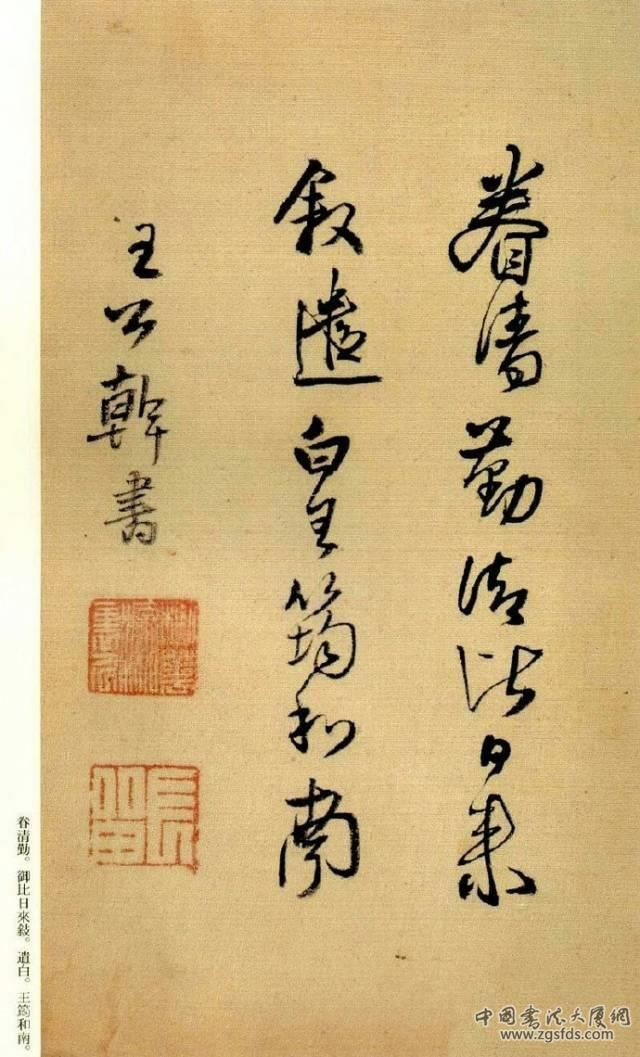 眷清勤御比日來
敘遣白王筠和南
王公幹書
眷清勤。御比日來敘。遺白。王筠和南。
中國書法大廈網
www.zgsfds.com